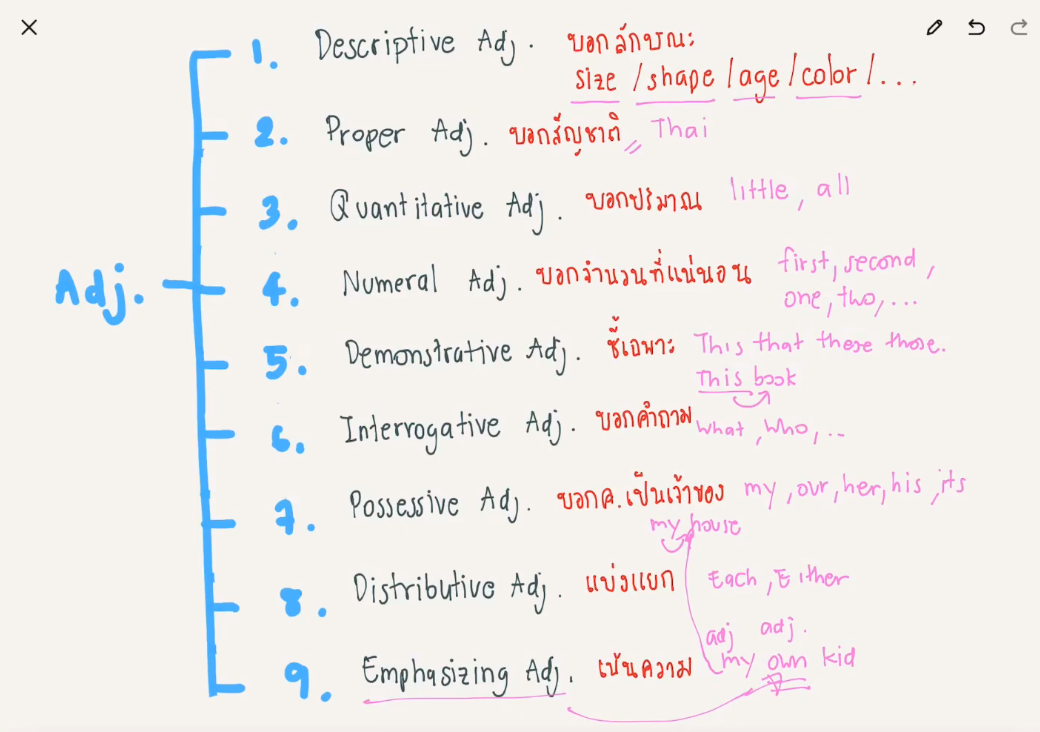 1. Descriptive Adj. บอกลักษณะ
size / shape / age / color / ...
2. Proper Adj. บอกสัญชาติ Thai
3. Quantitative Adj. บอกปริมาณ little, all
4. Numeral Adj. บอกจำนวนที่แน่นอน first, second,
one, two, ...
Adj.
5. Demonstrative Adj. ชี้เฉพาะ This that these those.
This book
6. Interrogative Adj. บอกคำถาม what, who, ...
7. Possessive Adj. บอกค.เป็นเจ้าของ my, our, her, his, its
my house
8. Distributive Adj. แบ่งแยก Each, Either
adj adj.
9. Emphasizing Adj. เน้นความ my own kid